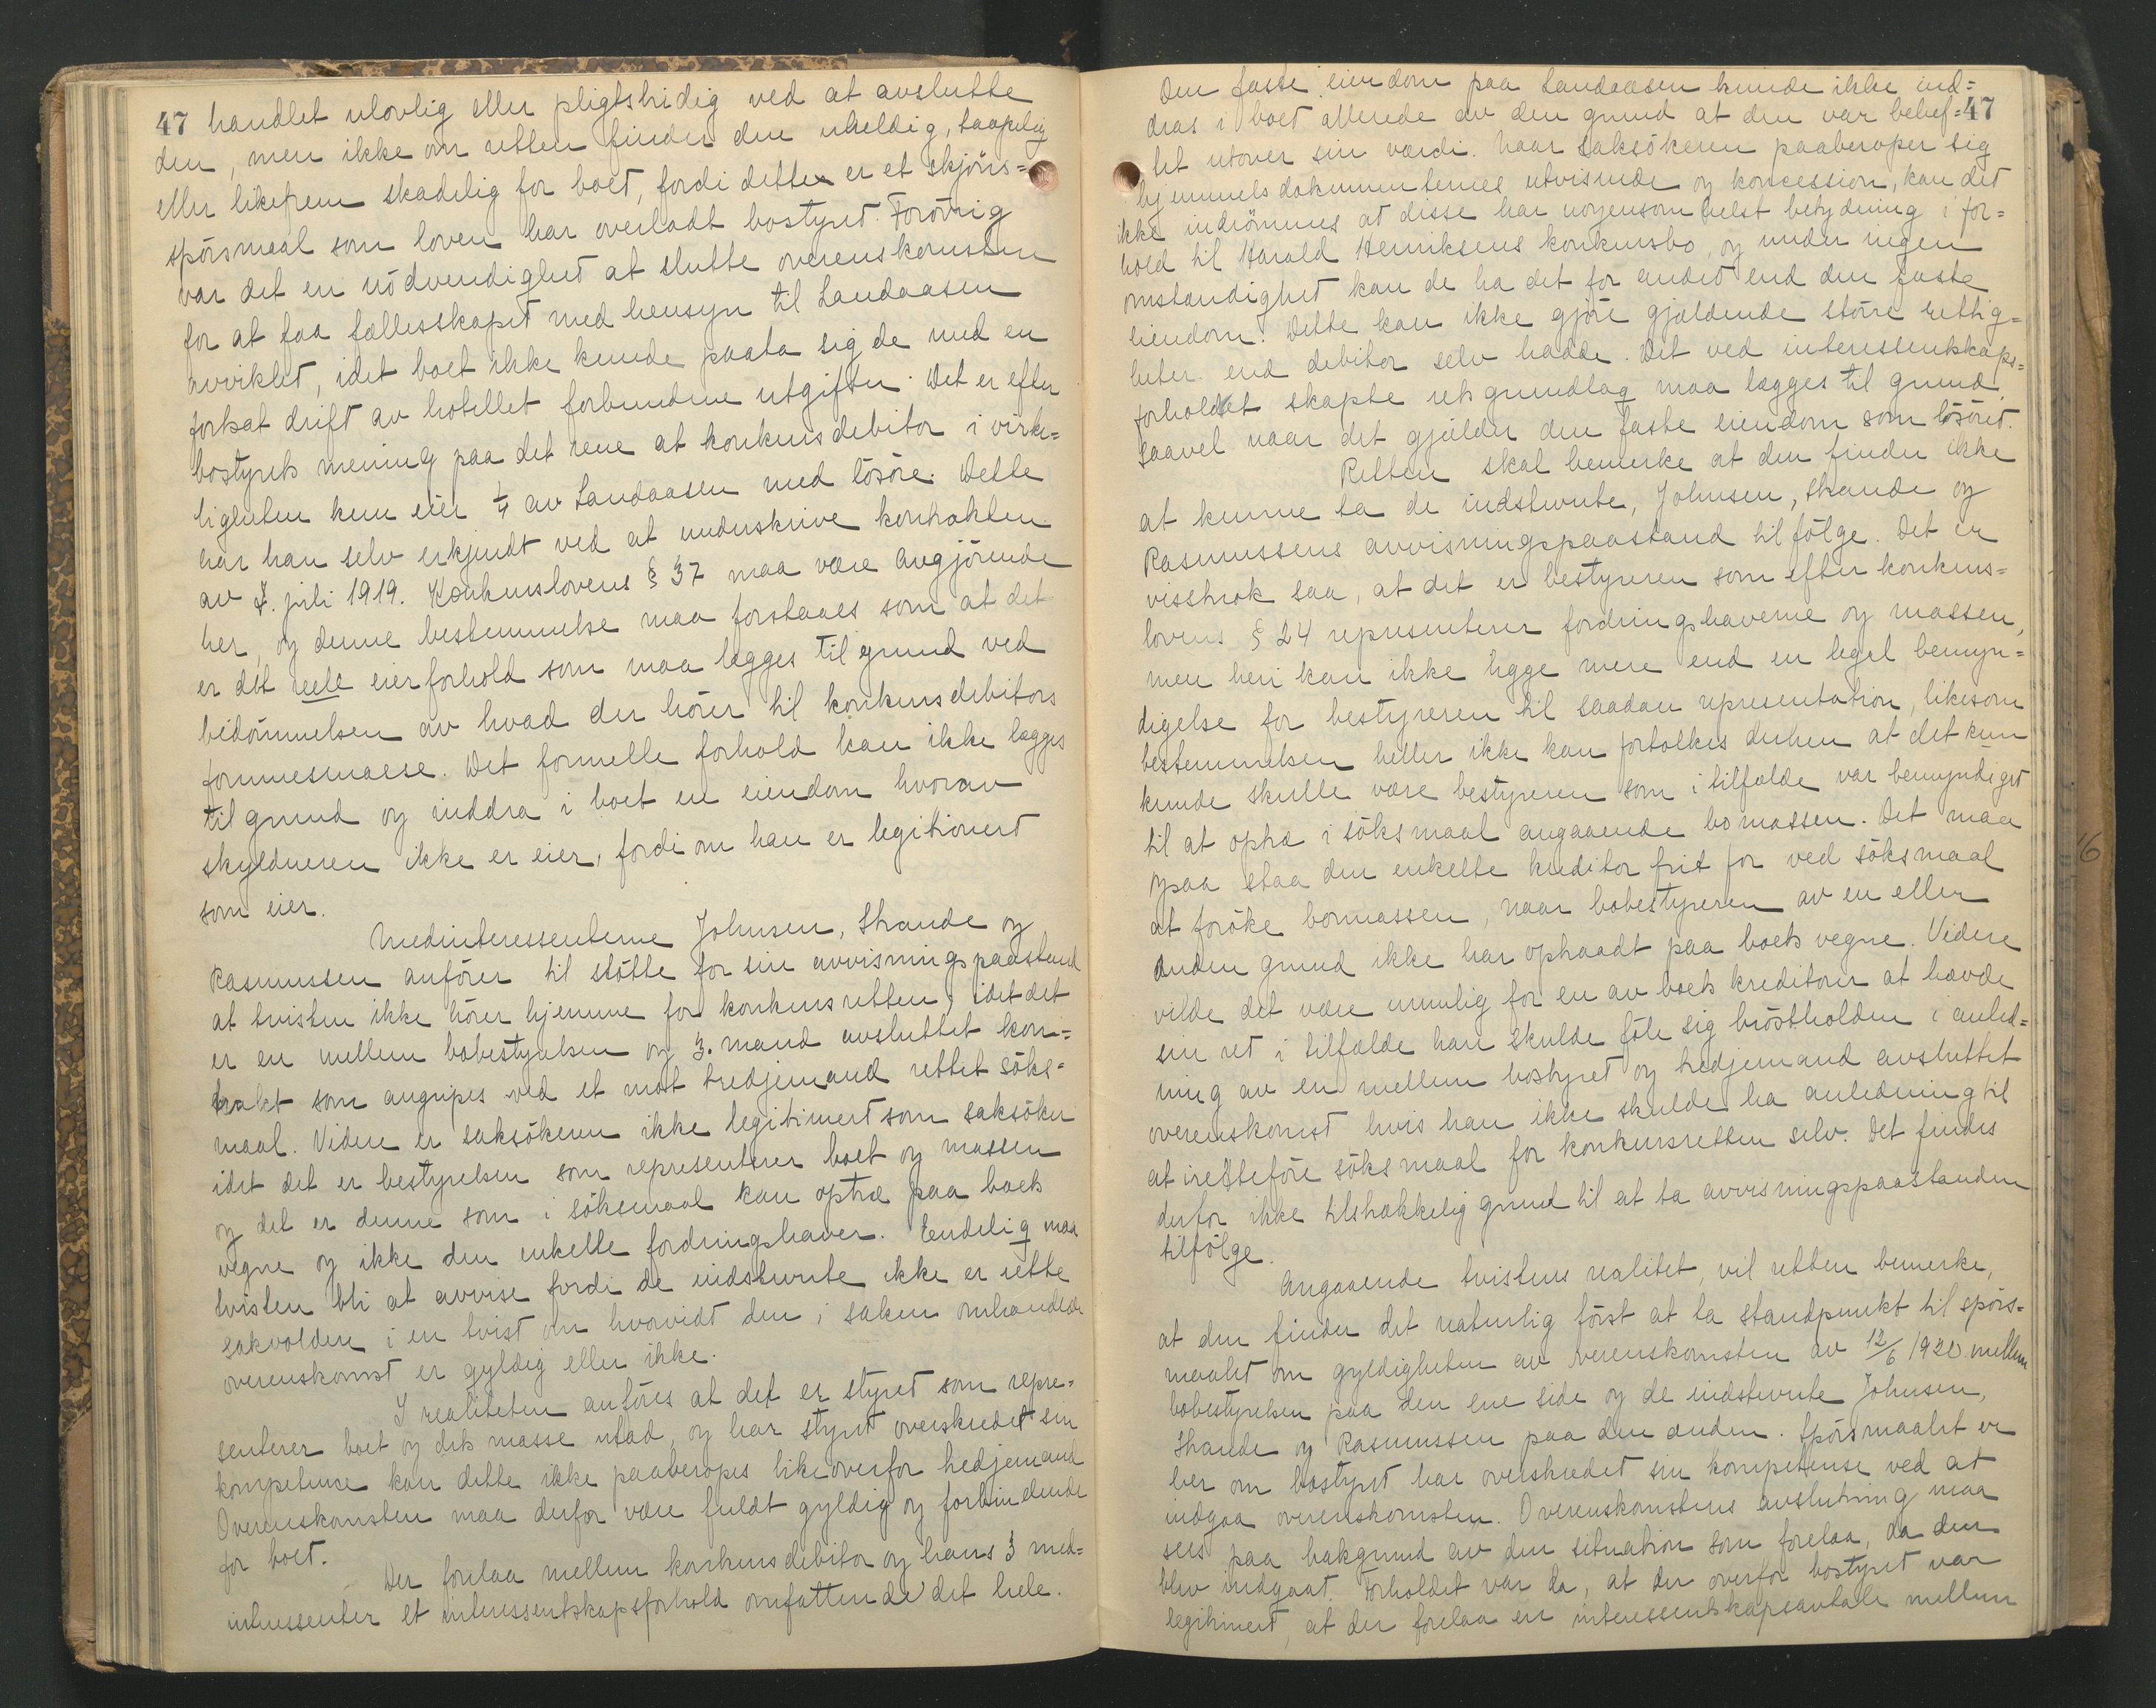 47 handlet ulovlig eller pligtstridig ved at avslutte
den, men ikke om retten finder den uheldig, taapelig
eller likefrem skadelig for boet, fordi dette er et skjöns=
spörsmaal som loven har overladt bostyret. Forövrig
var det en nödvendighet at slutte overenskomsten
for at faa fællesskapet med hensyn til Landaasen
avviklet, idet boet ikke kunde paata sig de med en
fortsat drift av hotellet forbundne utgifter. Det er efter
bostyrets mening paa det rene at konkursdebitor i virke=
ligheten kun eier 1/4 av Landaasen med lösöre. Dette
har han selv erkjendt ved at underskrive kontrakten
av 7. juli 1919. Konkurslovens § 37 maa være avgjörende
her, og denne bestemmelse maa forstaaes som at det
er det reele eierforhold som maa lægges til grund ved
bedömmelsen av hvad der hörer til konkursdebitors
formuesmasse. Det formelle forhold kan ikke lægges
til grund og inddra i boet en eiendom hvorav
skyldneren ikke er eier, fordi om han er legitimert
som eier.
Medinteressenterne Johnsen, Strande og
Rasmussen anförer til stötte for sin avvisningspaastand
at tvisten ikke hörer hjemme for konkursretten, idet det
er en mellem bobestyrelsen og 3. mand avsluttet kon=
trakt som angripes ved et mot tredjemand rettet söks=
maal. Videre er saksökeren ikke legitimert som saksöker
idet det er bestyrelsen som representerer boet og massen
og det er denne som i söksmaal kan optræ paa boets
vegne og ikke den enkelte fordringshaver. Endelig maa
tvisten bli at avvise fordi de indstevnte ikke er rette
sakvoldere i en tvist om hvorvidt den i saken omhandlede
overenskomst er gyldig eller ikke.
I realiteten anföres at det er styret som repre=
senterer boet og dets masse utad, og har styret overskredet sin
kompetence kan dette ikke paaberopes likeoverfor tredjemand
Overenskomsten maa derfor være fuldt gyldig og forbindende
for boet.
Der forelaa mellem konkursdebitor og hans 3 med=
interessenter et interessentskapsforhold omfattende det hele.
Den faste eiendom paa Landaasen kunde ikke ind=
dras i boet allerede av den grund at den var behef= 47
tet utover sin værdi. Naar saksökeren paaberoper sig
hjemmelsdokumenternes utvisende og koncession, kan det
ikke indrömmes at disse har nogensomhelst betydning i for=
hold til Harald Henriksens konkursbo, og under ingen
omstændighet kan de ha det for andet end den faste
eiendom. Dette kan ikke gjöre gjældende större rettig=
heter end debitor selv hadde. Det ved interessentskaps=
forholdet skapte retsgrundlag maa lægges til grund,
saavel naar det gjælder den faste eiendom som lösöret.
Retten skal bemerke at den finder ikke
at kunne ta de indstevnte, Johnsen, Strande og
Rasmussens avvisningspaastand tilfölge. Det er
visstnok saa, at det er bestyreren som efter konkurs=
lovens § 24 representerer fordringshaverne og massen,
men heri kan ikke ligge mere end en legel bemyn=
digelse for bestyreren til saadan representation, likesom
bestemmelsen heller ikke kan fortolkes derhen at det kun
kunde skulle være bestyreren som i tilfælde var bemyndiget
til at optræ i söksmaal angaaende bomassen. Det maa
ogsaa staa den enkelte kreditor frit for ved söksmaal
at foröke bomassen, naar bobestyreren av en eller
anden grund ikke har optraadt paa boets vegne. Videre
vilde det være umulig for en av boets kreditorer at hævde
sin ret i tilfælde han skulde föle sig bröstholden i anled=
ning av en mellem bostyret og tredjemand avsluttet
overenskomst hvis han ikke skulde ha anledning til
at iretteföre söksmaal for konkursretten selv. Det findes
derfor ikke tilstrækkelig grund til at ta avvisningspaastanden
tilfölge.
Angaaende tvistens realitet, vil retten bemerke,
at den finder det naturlig först at ta standpunkt til spörs=
maalet om gyldigheten av overenskomsten av 12/6 1920 mellem
bobestyrelsen paa den ene side og de indstevnte Johnsen,
Strande og Rasmussen paa den anden. Spörsmaalet er
her om bostyret har overskredet sin kompetense ved at
indgaa overenskomsten. Overenskomstens avslutning maa
sees paa bakgrund av den situation som forelaa, da den
blev indgaat. Forholdet var da, at der overfor bostyret var
legitimert, at der forelaa en interessentskapsavtale mellem
16